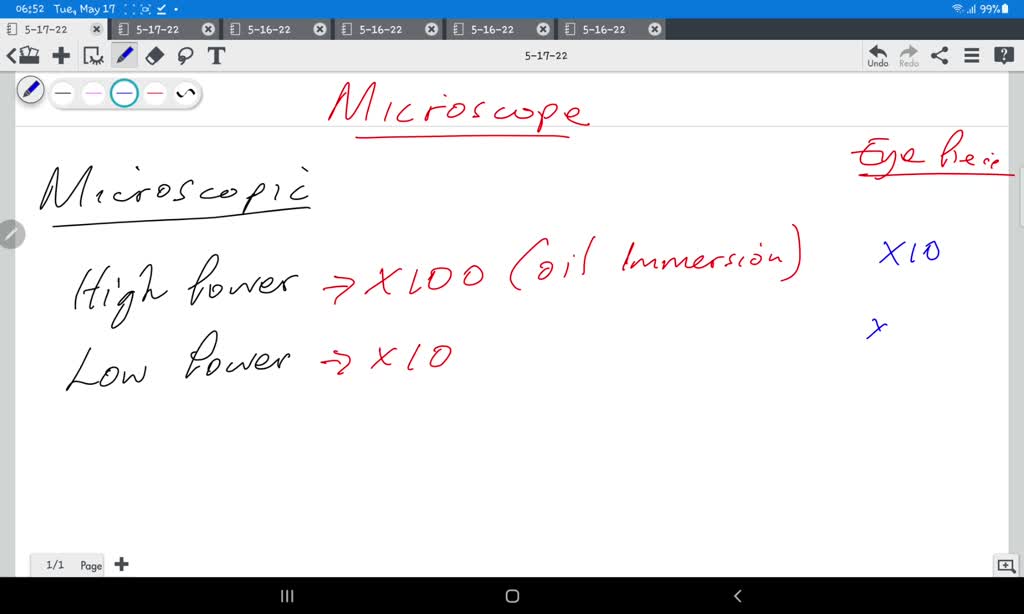 06:52 Tue, May 17 99%
5-17-22 5-17-22 5-16-22 5-16-22 5-16-22 5-16-22
T 5-17-22 Undo Redo
Microscope
Eye
Microscopic
High Power → X100 (oil Immersion) X10
Low Power → X10 x
1/1 Page